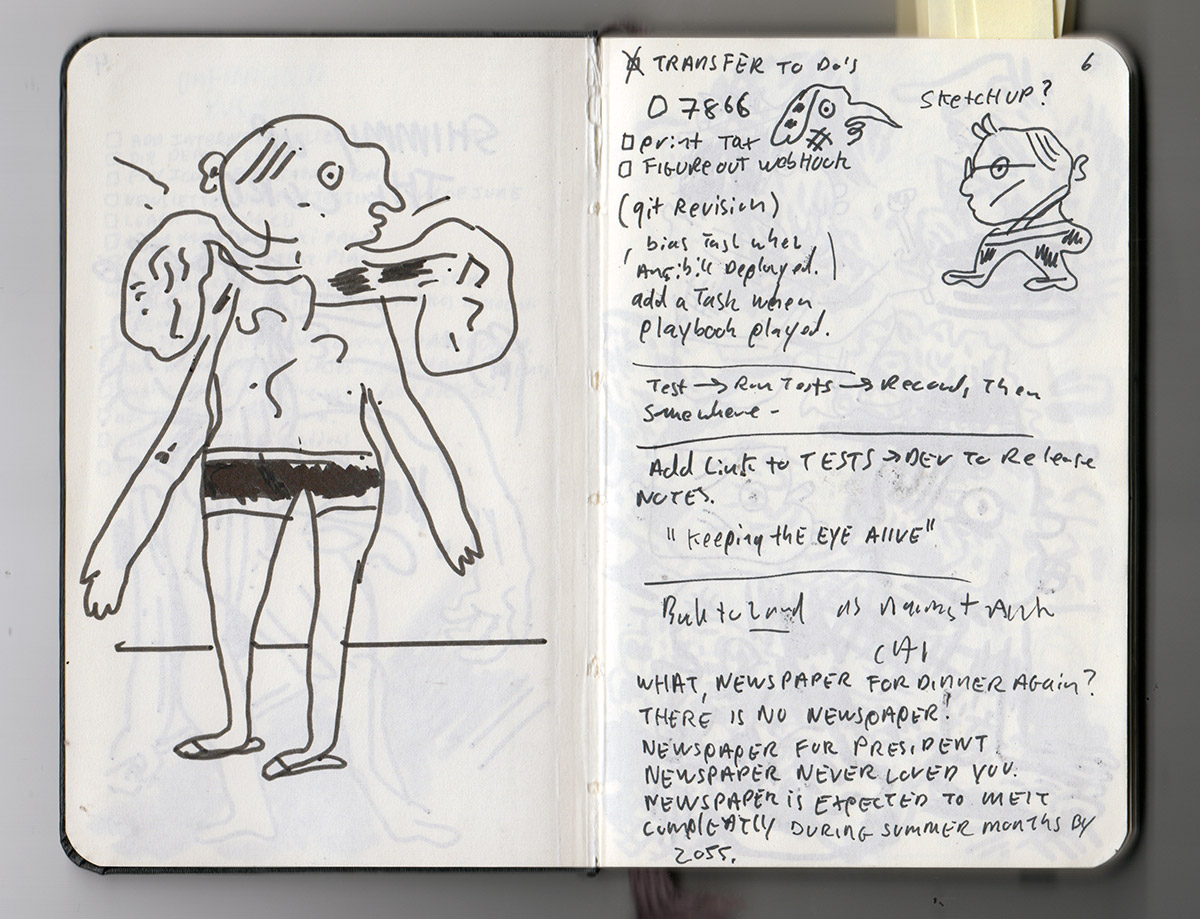 TRANSFER TO DO'S
6
7866
SketCH UP?
Print Tax
FIGURE OUT WebHook
(git Revision)
Task when
Deployed.
add a Task when
playbook played.
Test → Run Tests → Record, Then
Somewhere -
Add Link to TESTS → DEV To Release
NOTES.
"Keeping the EYE AlIVE"
to Land as
WHAT, NEWSPAPER FOR DINNER AGAIN?
THERE IS NO NEWSPAPER!
NEWSPAPER FOR PRESIDENT
NEWSPAPER NEVER LOVED YOU.
NEWSPAPER IS EXPECTED TO MELT
DURING SUMMER MONTHS BY
2055.